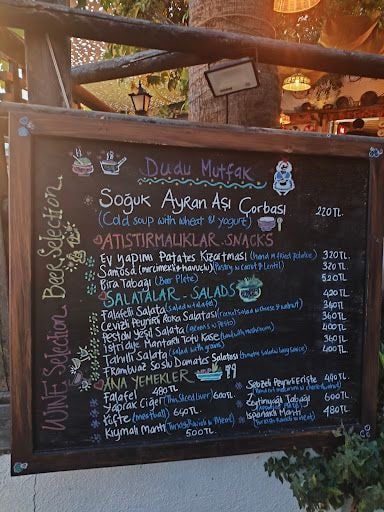 Dudu Mutfak
Soğuk Ayran Aşı Çorbası 220 TL
(Cold soup with wheat & yogurt)
ATIŞTIRMALIKLAR - SNACKS
Ev Yapımı Patates Kızartması (hand made fried potatoe) 320 TL
Samosa (mercimekli & havuçlu) (Pastry w carrot & Lentil) 320 TL
Bira Tabağı (Beer Plate) 520 TL
SALATALAR - SALADS
Falafelli Salata (salad w falafel) 420 TL
Cevizli Peynirli Roka Salatası 360 TL
Pestolu Yeşil Salata (greens w pesto) 400 TL
İstiridye Mantarlı Tofu Kase (bowl with mushroom) 400 TL
Tahıllı Salata (salad with grains) 360 TL
Frambuaz Soslu Domates Salatası 400 TL
ANA YEMEKLER
Falafel 480 TL
Yaprak Ciğer (Thin Sliced Liver) 600 TL
Köfte (meatball) 640 TL
Kıymalı Mantı (Turkish Ravioli w Meat)
500 TL
Sebzeli Peynirli Erişte 460 TL
Zeytinyağlı Tabağı 600 TL
Ispanaklı Mantı 480 TL
WINE Selection
Beer Selection